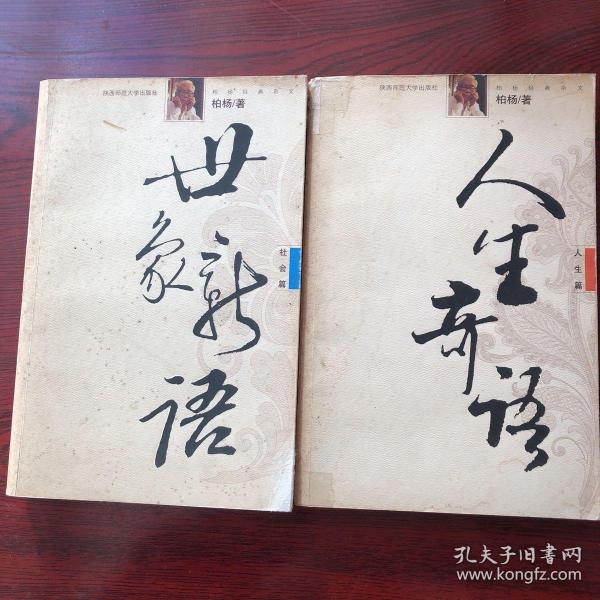 陕西师范大学出版社
柏杨经典杂文
柏杨/著
世象新语
社会篇
陕西师范大学出版社
柏杨经典杂文
柏杨/著
人生奇语
人生篇
孔夫子旧书网
www.kongfz.com